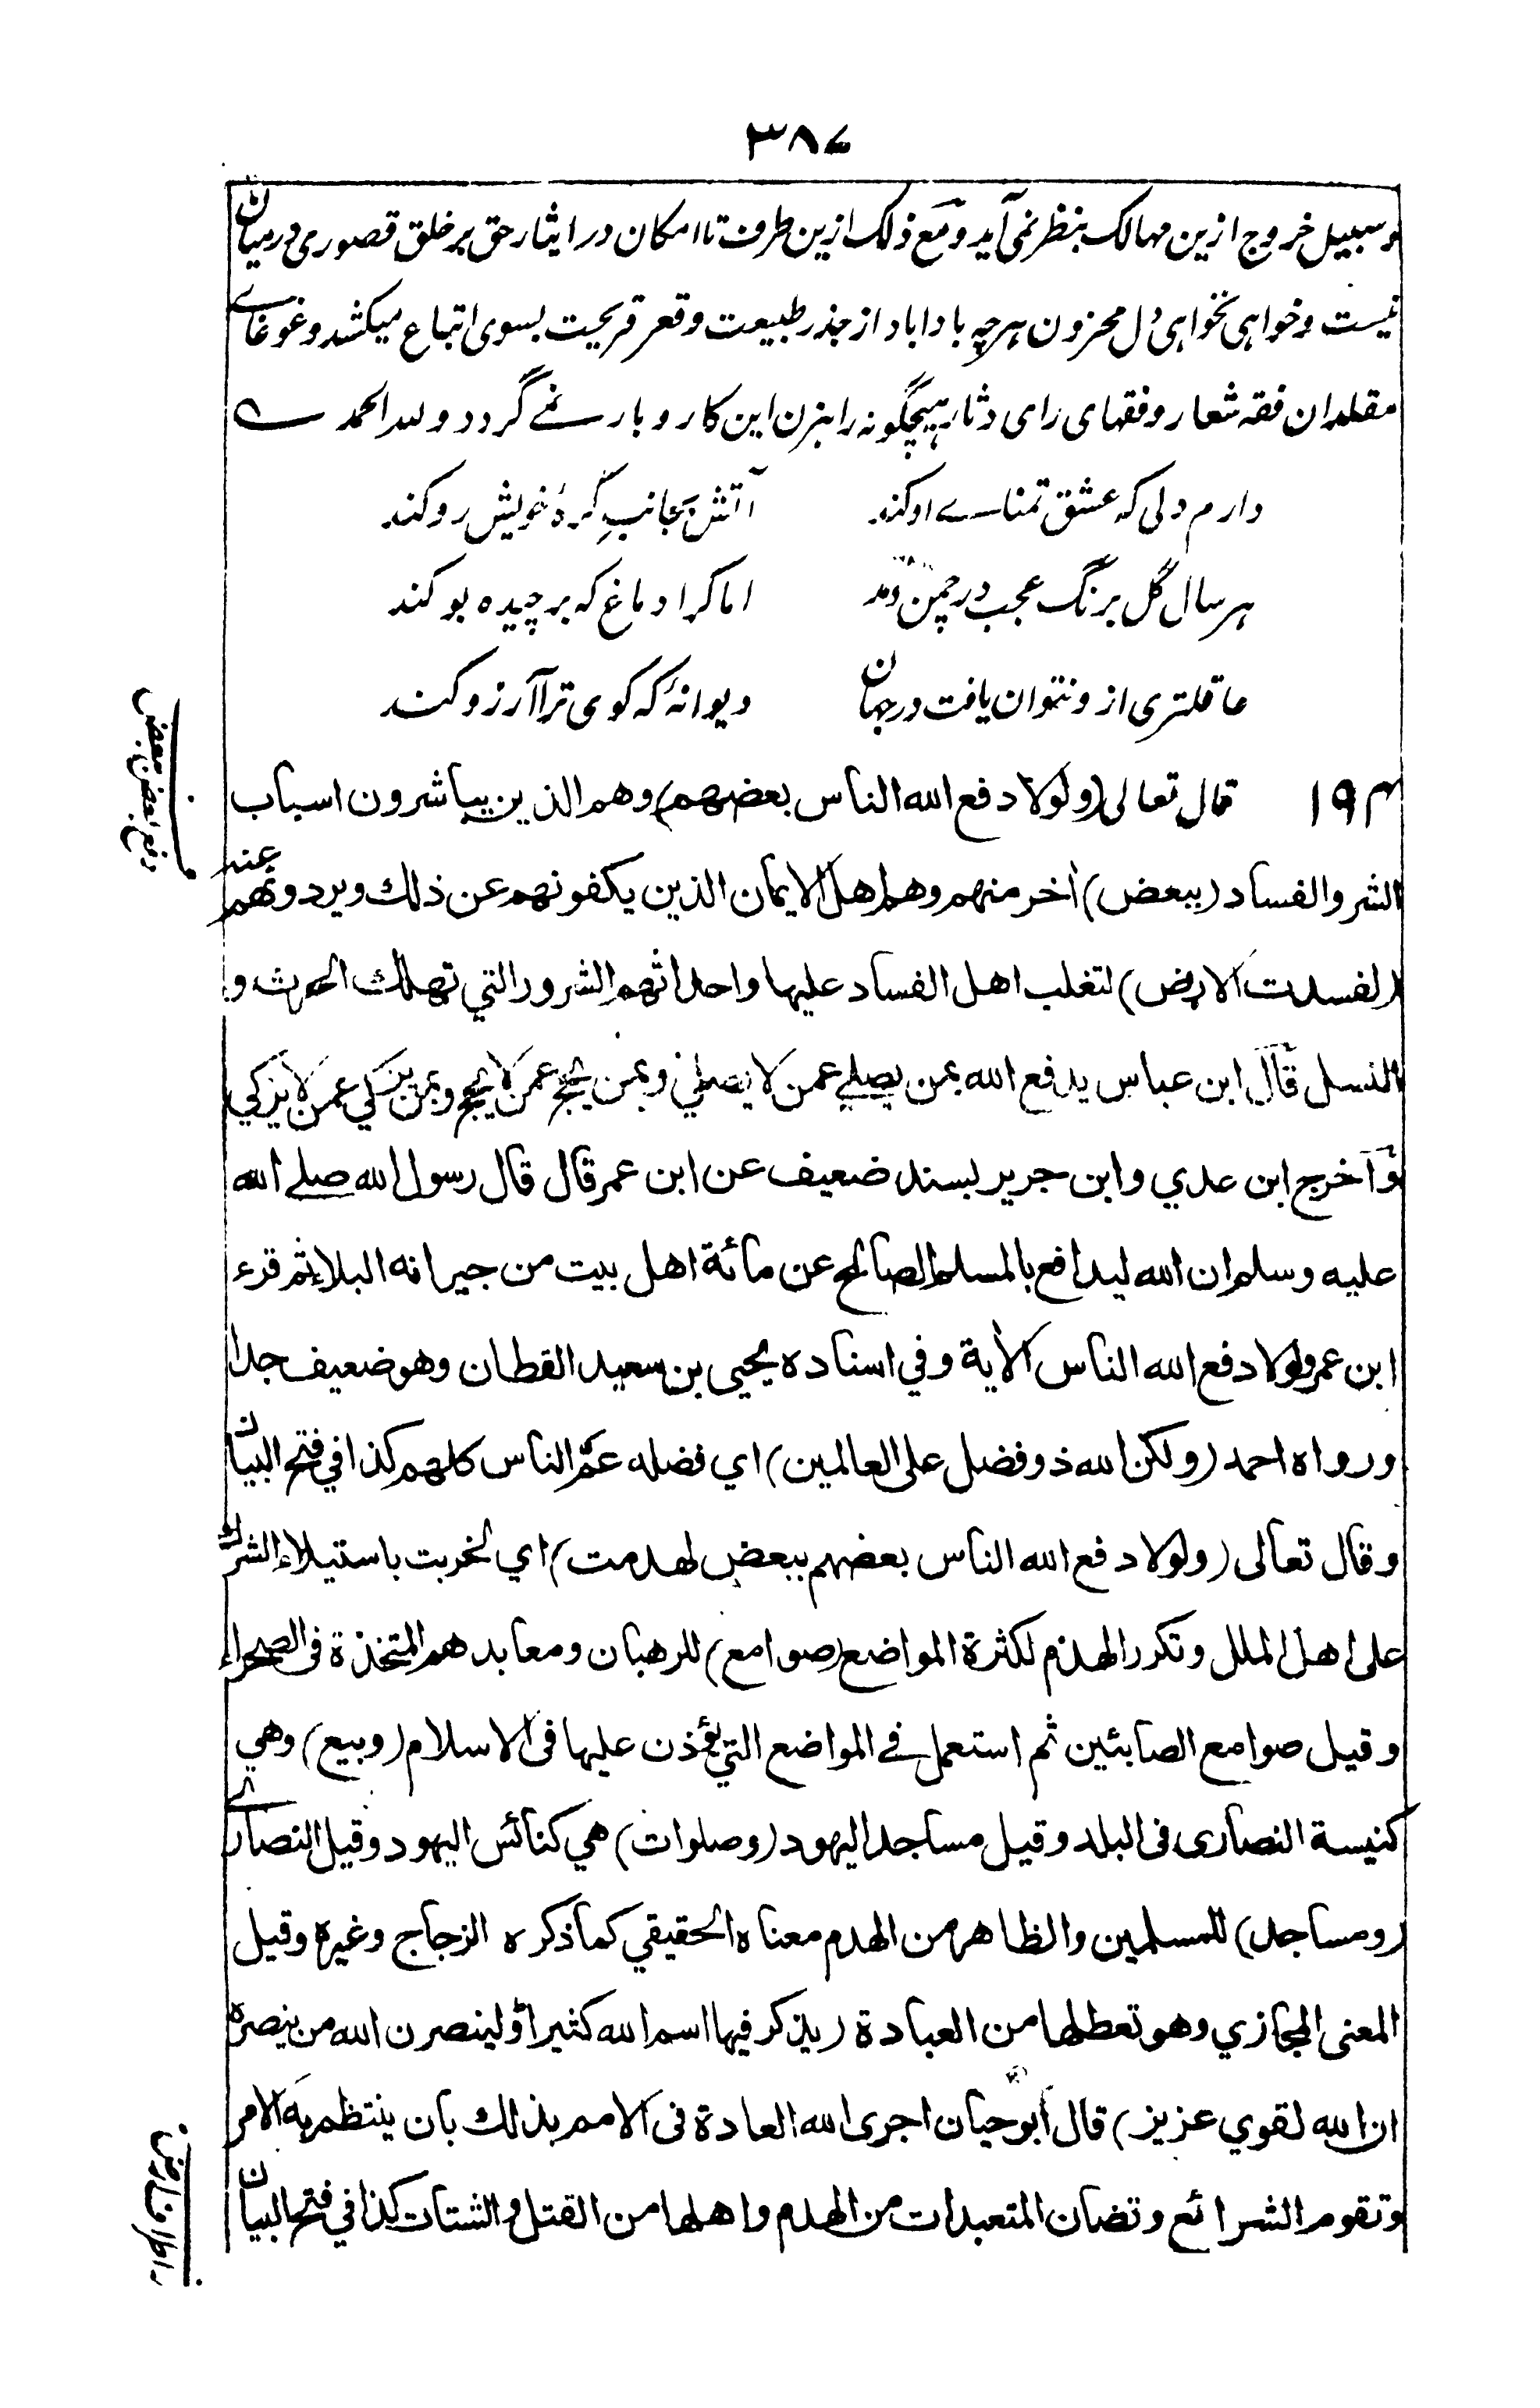 ٣٨٧
وسبیل خروج ازین مهالک بنظر نمی آید و مع ذلک ازین طرف تا امکان در ایثار حق بر خلق قصوری درمیان
نیست و خواهی نخواهی دل محزون هرچه بادا باد از جذر طبیعت و قعر قریحت بسوی اتباع میکشد و غوغای
مقلدان فقه شعار و فقهای رای دثار هیچگونه راهزن این کار و بار نمے گردد و لله الحمد ے
دارم دلی که عشق تمناے او کند آتش بجانب گرهٔ خویش رو کند
هر سال گل برنگ عجب در چمن دمد اما کرا دماغ که برچیده بو کند
عاقلتری ازو نتوان یافت در جهان دیوانهٔ که کوی ترا آرزو کند
١٩٣ قال تعالى (ولولا دفع الله الناس بعضهم) وهم الذين يباشرون اسباب
الشر والفساد (ببعض) اٰخر منهم وهم اهل الايمان الذين يكفونهم عن ذلك ويردونهم عنه
(لفسدت الارض) لتغلب اهل الفساد عليها واحداثهم الشرور التي تهلك الحرث و
النسل قال ابن عباس يدفع الله بمن يصلي عمن لا يصلي وبمن يحج عمن لا يحج وبمن يزكي عمن لا يزكي
وأخرج ابن عدي وابن جرير بسند ضعيف عن ابن عمر قال قال رسول الله صلے الله
عليه وسلم ان الله ليدافع بالمسلم الصالح عن مائة اهل بيت من جيرانه البلاء ثم قرء
ابن عمر ولولا دفع الله الناس الاٰية وفي اسناده يحيى بن سعيد القطان وهو ضعيف جدا
ورواه احمد (ولكن الله ذو فضل على العالمين) اي فضله عمّ الناس كلهم كذا في فتح البيان
وقال تعالى (ولولا دفع الله الناس بعضهم ببعض لهدمت) اي لخربت باستيلاء الشرك
على اهل الملل وتكرر الهدم لكثرة المواضع (صوامع) للرهبان ومعابدهم المتخذة فى الصحراء
وقيل صوامع الصابئين ثم استعمل في المواضع التي يؤذن عليها فى الاسلام (وبيع) وهي
كنيسة النصارى فى البلد وقيل مساجد اليهود (وصلوات) هي كنائس اليهود وقيل النصارى
(ومساجد) للمسلمين والظاهر من الهدم معناه الحقيقي كما ذكره الزجاج وغيره وقيل
المعنى المجازي وهو تعطلها من العبادة (يذكر فيها اسم الله كثيرا ولينصرن الله من ينصره
ان الله لقوي عزيز) قال أبو حيان اجرى الله العادة فى الامم بذلك بان ينتظم به الامر
وتقوم الشرائع وتضان المتعبدات من الهدم واهلها من القتل والشتات كذا في فتح البيان
دفع بعض ببعض